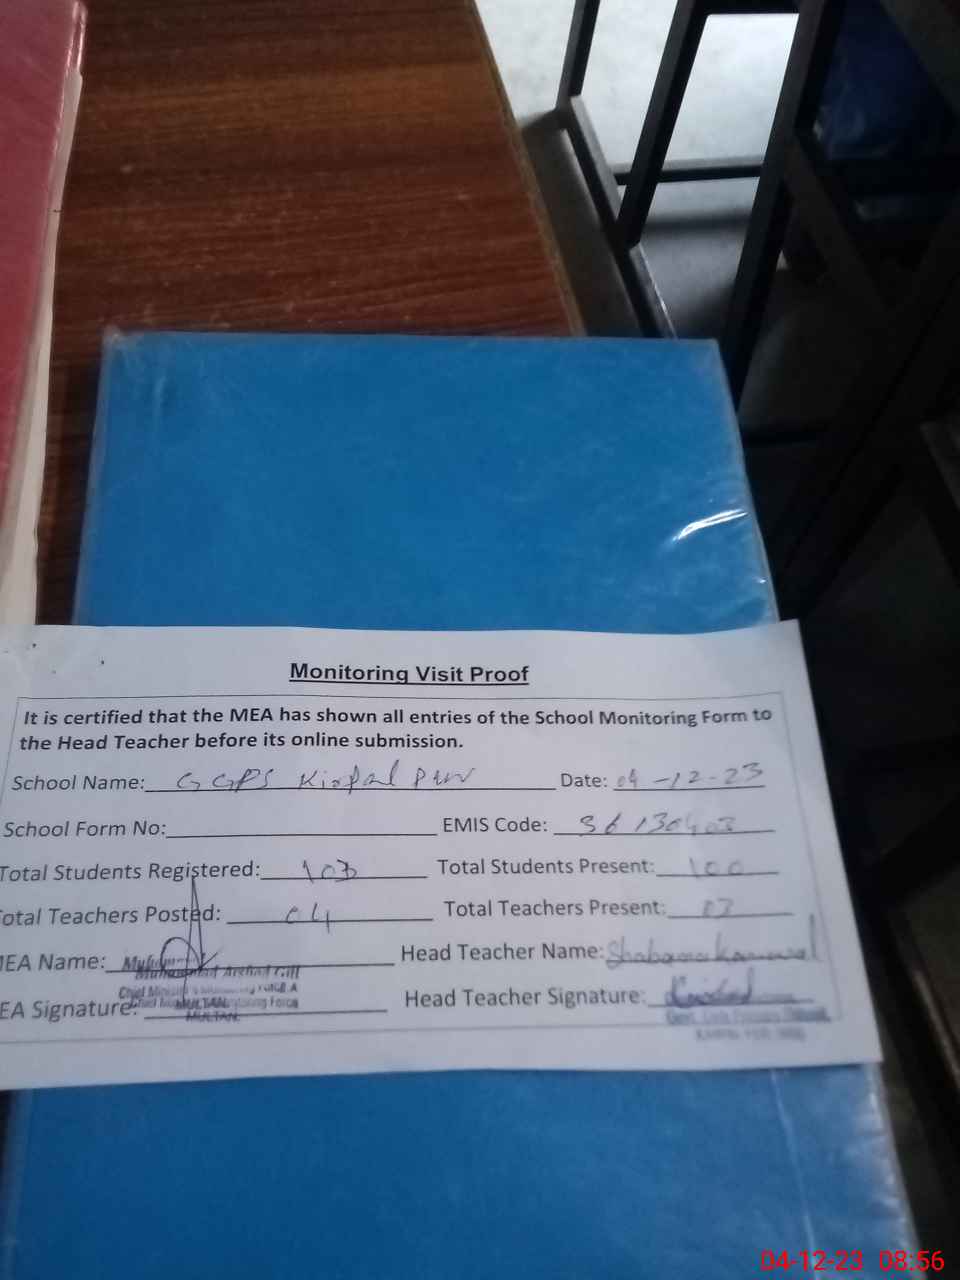 Monitoring Visit Proof
It is certified that the MEA has shown all entries of the School Monitoring Form to
the Head Teacher before its online submission.
School Name: GGPS Date: 04-12-23
School Form No: EMIS Code:
Total Students Registered: 103 Total Students Present: 100
Total Teachers Posted: 04 Total Teachers Present: 03
MEA Name: Muhammad Arshad Gill Head Teacher Name: Shabana Kanwal
MEA Signature: Head Teacher Signature:
MULTAN
MULTAN
04-12-23 08:56